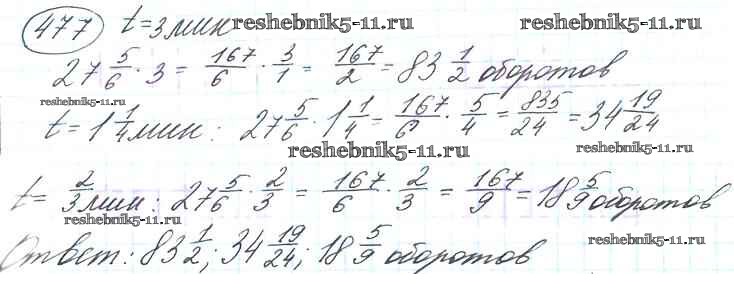 477 t=3мин reshebnik5-11.ru reshebnik5-11.ru
27 5/6 · 3 = 167/6 · 3/1 = 167/2 = 83 1/2 оборотов
reshebnik5-11.ru
t=1 1/4 мин: 27 5/6 · 1 1/4 = 167/6 · 5/4 = 835/24 = 34 19/24
reshebnik5-11.ru reshebnik5-11.ru
t= 2/3 мин: 27 5/6 · 2/3 = 167/6 · 2/3 = 167/9 = 18 5/9 оборотов
reshebnik5-11.ru
Ответ: 83 1/2; 34 19/24; 18 5/9 оборотов
reshebnik5-11.ru